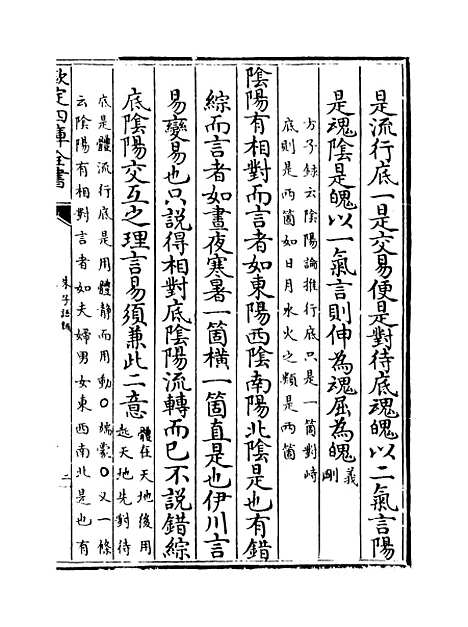 是流行底一是交易便是對待底魂魄以二氣言陽
是魂陰是魄以一氣言則伸為魂屈為魄義剛
方子録云陰陽論推行底只是一箇對峙
底則是兩箇如日月水火之類是兩箇
陰陽有相對而言者如東陽西陰南陽北陰是也有錯
綜而言者如晝夜寒暑一箇橫一箇直是也伊川言
易變易也只說得相對底陰陽流轉而已不說錯綜
底陰陽交互之理言易須兼此二意體在天地後用
起天地先對待
底是體流行底是用體靜而用動○端蒙○又一條
云陰陽有相對言者如夫婦男女東西南北是也有
欽定四庫全書
朱子語類
二